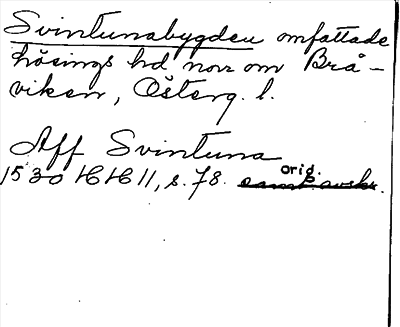 Svintunabygden omfattade
hösings hd norr om Brå-
viken, Österg. l.
Aff Svintuna
orig.
1530 HH 11, s. 78. samt. avskr.